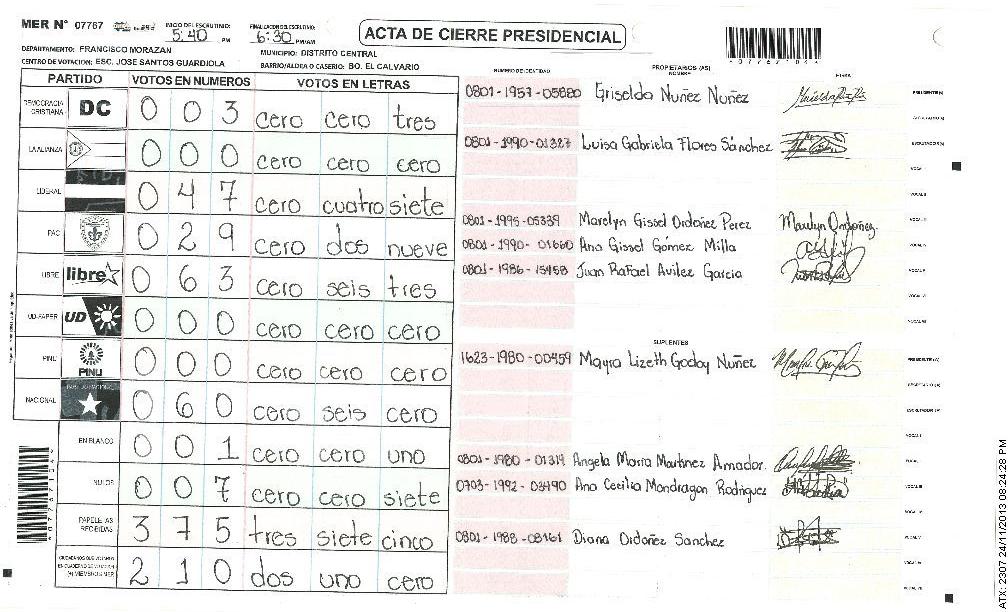 MER N° 07767
INICIO DEL ESCRUTINIO: 5:40 PM
FINALIZACION DEL ESCRUTINIO: 6:30 PM/AM
ACTA DE CIERRE PRESIDENCIAL
DEPARTAMENTO: FRANCISCO MORAZAN
MUNICIPIO: DISTRITO CENTRAL
CENTRO DE VOTACION: ESC. JOSE SANTOS GUARDIOLA
BARRIO/ALDEA O CASERIO: BO. EL CALVARIO
PARTIDO VOTOS EN NUMEROS VOTOS EN LETRAS
DEMOCRACIA CRISTIANA DC 0 0 3 cero cero tres
LA ALIANZA 0 0 0 cero cero cero
LIBERAL 0 4 7 cero cuatro siete
PAC 0 2 9 cero dos nueve
LIBRE libre 0 6 3 cero seis tres
UD-FAPER UD 0 0 0 cero cero cero
PINU PINU 0 0 0 cero cero cero
NACIONAL 0 6 0 cero seis cero
EN BLANCO 0 0 1 cero cero uno
NULOS 0 0 7 cero cero siete
PAPELETAS RECIBIDAS 3 7 5 tres siete cinco
CIUDADANOS QUE VOTARON 2 1 0 dos uno cero
NUMERO DE IDENTIDAD PROPIETARIOS (AS) NOMBRE FIRMA
0801-1957-05820 Griselda Nuñez Nuñez PRESIDENTE(A)
0801-1990-01327 Luisa Gabriela Flores Sánchez ESCRUTADOR(A)
0801-1995-05339 Marelyn Gissel Ordoñez Perez Marelyn Ordoñez
0801-1990-01660 Ana Gissel Gómez Milla
0801-1986-15458 Juan Rafael Avilez Garcia
SUPLENTES
1623-1980-00459 Mayra Lizeth Godoy Nuñez PRESIDENTE(A)
0801-1980-01319 Angela Maria Martinez Amador.
0703-1992-03490 Ana Cecilia Mondragon Rodriguez
0801-1988-08461 Diana Ordoñez Sanchez
ATX: 2307 24/11/2013 08:24:28 PM